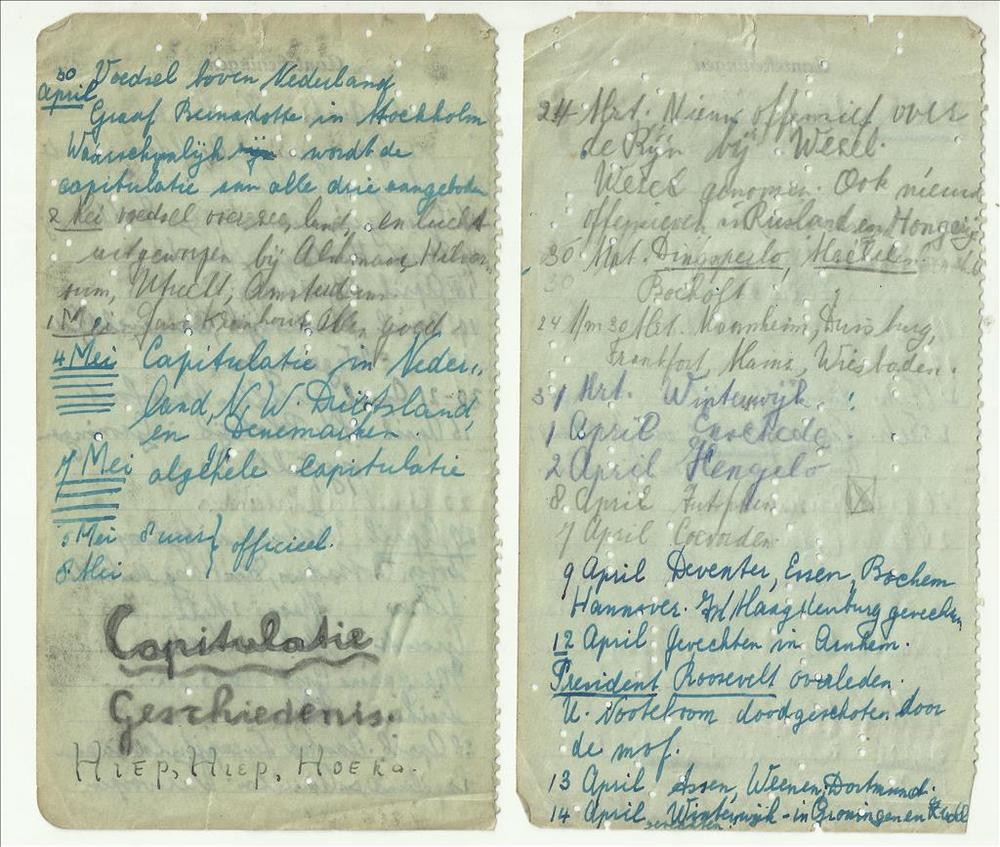 30 April Voedsel boven Nederland
Graaf Bernadotte in Stockholm
Waarschynlyk wordt de
capitulatie aan alle drie aangeboden
2 Mei voedsel over zee, land, en lucht
uitgeworpen bij Alkmaar, Hilver
sum, Utrecht, Amsterdam
1 Mei Allen goed
4 Mei Capitulatie in Neder,
land, N.W. Duitsland,
en Denemarken.
7 Mei algehele capitulatie
5 Mei 8 uur } officieel.
8 Mei
Capitulatie
Geschiedenis.
HIEP, HIEP, HOERA.
24 Mrt. Nieuw offensief over
de Ryn bij Wesel.
Wesel genomen. Ook nieuw
offensieven in Rusland en Hongarije
30 Mrt. Dinxperlo,
30 Bocholt
24 t/m 30 Mrt. Mannheim, Duisburg,
Frankfort, Mainz, Wiesbaden.
31 Mrt. Winterwyk.
1 April Enschede.
2 April Hengelo
8 April Zutphen
7 April Coevorden
9 April Deventer, Essen, Bochem
Hannover. gevechten
12 April Gevechten in Arnhem.
President Roosevelt overleden.
U. Nooteboom doodgeschoten door
de mof.
13 April Assen, Weenen, Dortmund.
14 April Winterwyk - in Groningen en